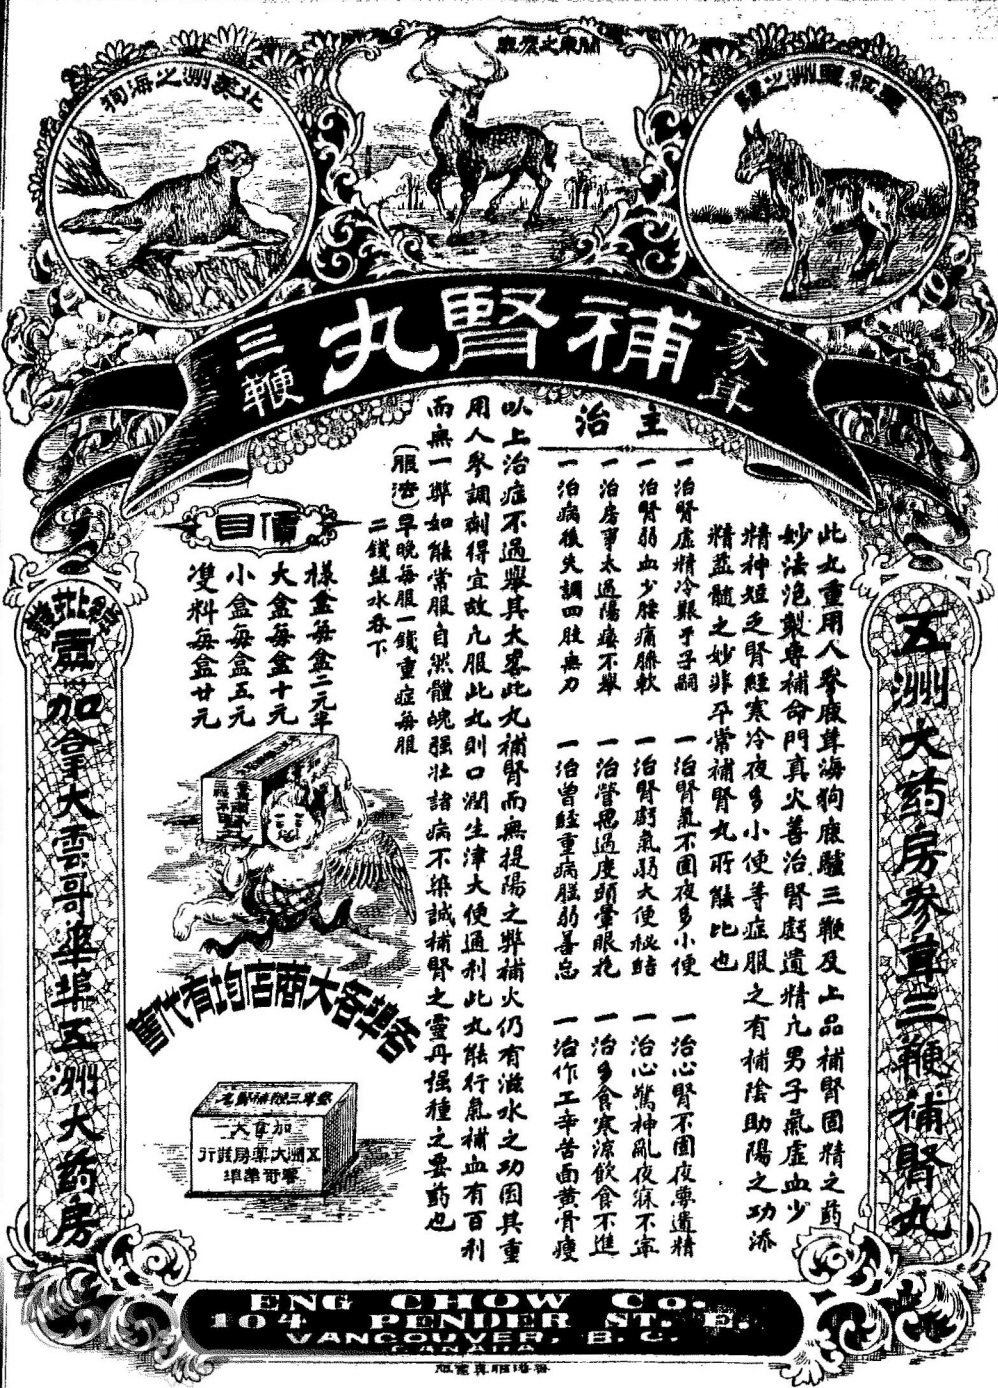 關東之鹿茸
北美洲之海狗
洲之驢
參茸
補腎丸
三鞭
五洲大药房參茸三鞭補腎丸
此丸重用人參鹿茸海狗鹿驢三鞭及上品補腎固精之葯
妙法泡製專補命門真火善治腎虧遺精凢男子氣虛血少
精神短乏腎經寒冷夜多小便等症服之有補陰助陽之功添
精益髓之妙非平常補腎丸所能比也
主治
一治腎虛精冷艱于子嗣
一治腎氣不固夜多小便
一治心腎不固夜夢遺精
一治腎弱血少腰痛脚軟
一治腎虧氣弱大便秘結
一治心驚神亂夜寐不寧
一治房事太過陽痿不舉
一治營思過度頭暈眼花
一治多食寒涼飲食不進
一治病後失調四肢無力
一治曾經重病腦弱善忘
一治作工辛苦面黄骨瘦
以上治症不過舉其大畧此丸補腎而無提陽之弊補火仍有滋水之功因其重
用人參調劑得宜故凢服此丸則口潤生津大便通利此丸能行氣補血有百利
而無一弊如能常服自然體魄强壮諸病不染誠補腎之靈丹種之葯也
(服法)早晚每服一錢重症每服
二錢盐水吞下
價目
樣盒每盒二元半
大盒每盒十元
小盒每盒五元
雙料每盒廿元
各埠各大商店均有代售
參茸三鞭補腎丸
加拿大
五洲大藥房發行
雲哥華埠
加拿大雲哥華埠五洲大药房
ENG CHOW Co.
104 PENDER ST. E.
VANCOUVER, B.C.
CANADA